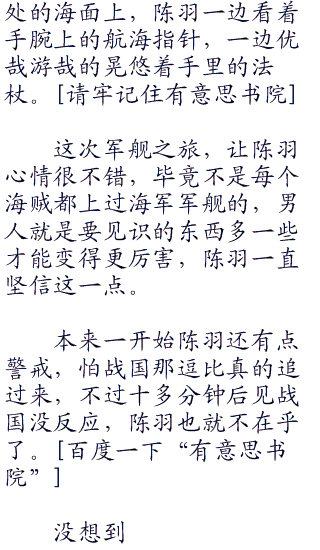 处的海面上，陈羽一边看着
手腕上的航海指针，一边优
哉游哉的晃悠着手里的法
杖。[请牢记住有意思书院]
这次军舰之旅，让陈羽
心情很不错，毕竟不是每个
海贼都上过海军军舰的，男
人就是要见识的东西多一些
才能变得更厉害，陈羽一直
坚信这一点。
本来一开始陈羽还有点
警戒，怕战国那逗比真的追
过来，不过十多分钟后见战
国没反应，陈羽也就不在乎
了。[百度一下“有意思书
院”]
没想到